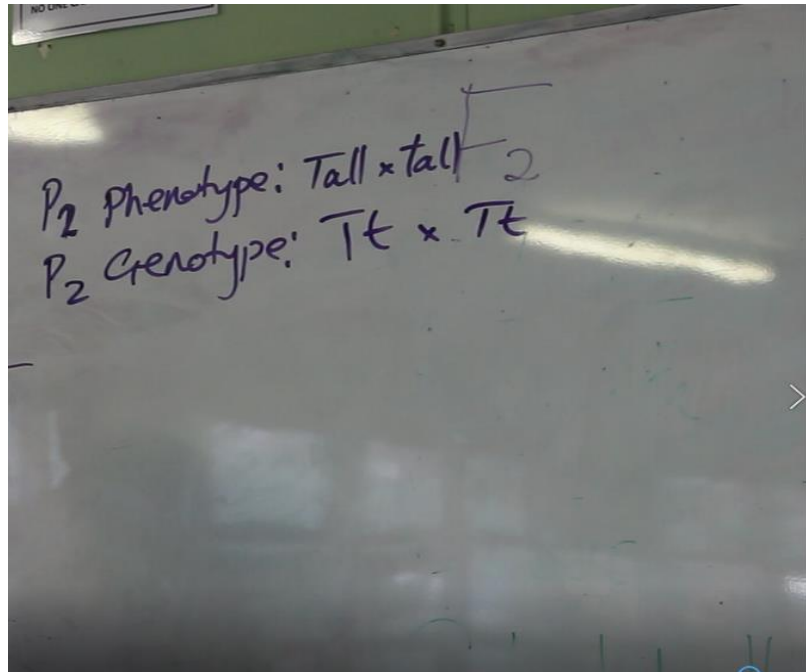 NO ONE
P2 Phenotype: Tall x tall F2
P2 Genotype: Tt x Tt